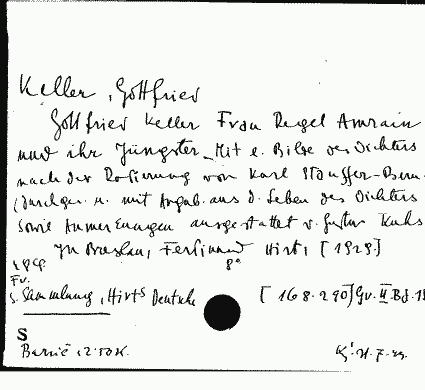 Keller, Gottfried
Gottfried Keller Frau Regel Amrain
und ihr Jüngster. Mit e. Bilde des Dichters
nach der Radierung von Karl Stauffer-Bern.
(Durchges. u. mit Angab. aus d. Leben des Dichters
sowie Anmerkungen ausgestattet v. Gustav
In Breslau, Ferdinand Hirt, [1929.]
8°
S. Sammlung, Hirts Deutsche [168.290] Gv. II Bd. 19
S